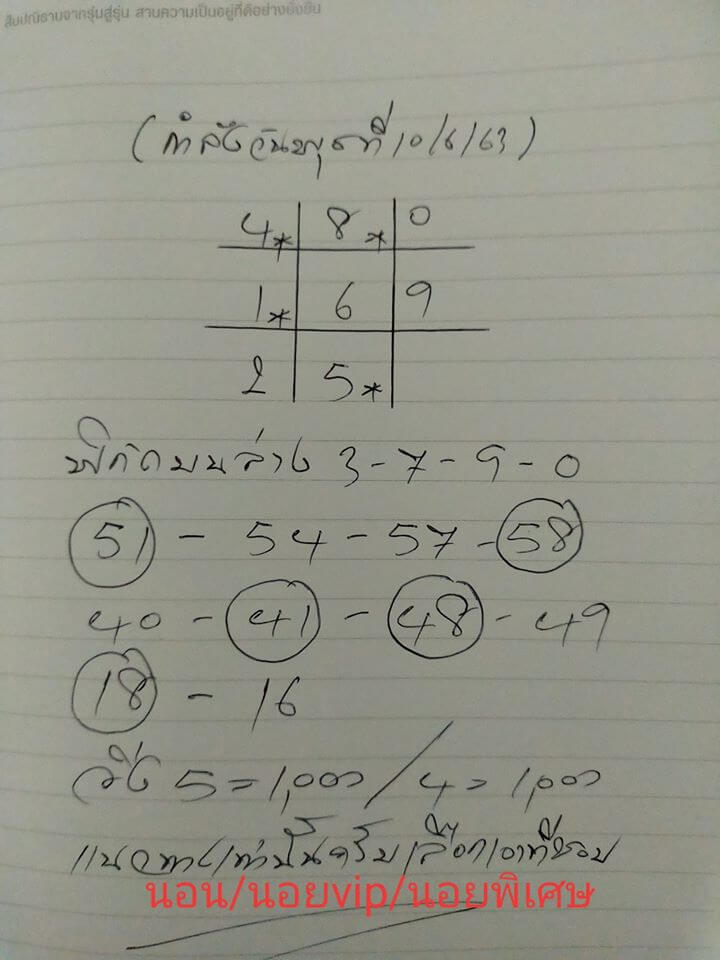 สืบปณิธานจากรุ่นสู่รุ่น สานความเป็นอยู่ที่ดีอย่างยั่งยืน
(กำลังวันพุธที่ 10/6/63)
4* 8* 0
1* 6 9
2 5*
พิกัดบนล่าง 3-7-9-0
51 - 54 - 57 - 58
40 - 41 - 48 - 49
18 - 16
วิ่ง 5 = 1,000 / 4 = 1,000
แนวทางเท่านั้นครับเลือกเอาที่ชอบ
นอน/นอยvip/นอยพิเศษ